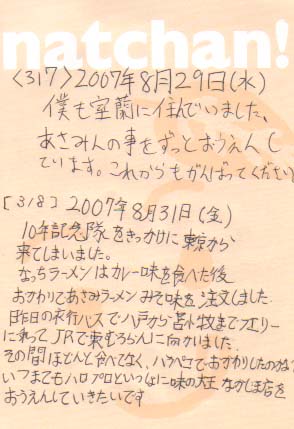 natchan!
<317>2007年8月29日(水)
僕も室蘭に住んでいました、
あさみんの事をずっとおうえんし
ています。これからもがんばってください
[318] 2007年8月31日(金)
10年記念隊をきっかけに東京から
来てしまいました。
なっちラーメンはカレー味を食べた後
おかわりであさみラーメンみそ味を注文しました
昨日の夜行バスで八戸から苫小牧までフェリー
に乗ってJRで東むろらんに向かいました。
その間ほとんど食べてなく、ハラペコでおかわりしたのかな?
いつまでもハロプロといっしょに味の大王 なかじま店を
おうえんしていきたいです